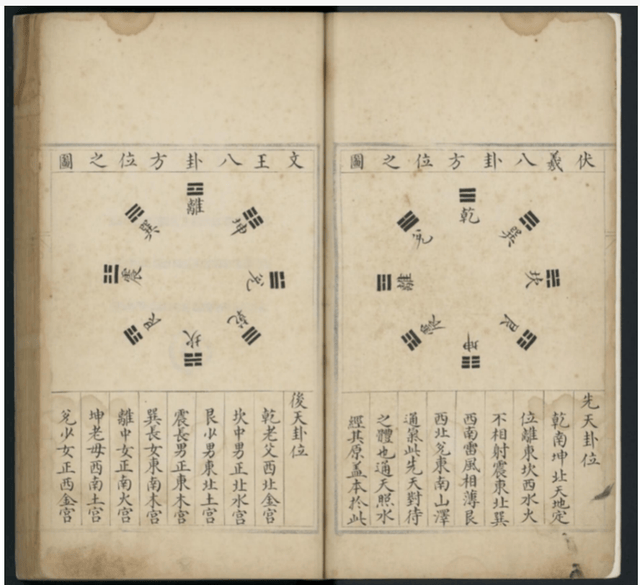 伏羲八卦方位之圖
乾
巽
坎
艮
坤
震
離
兌
先天卦位
乾南坤北天地定
位離東坎西水火
不相射震東北巽
西南雷風相薄艮
西北兌東南山澤
通氣此先天對待
之體也通天照水
經其原盖本於此
文王八卦方位之圖
離
坤
兌
乾
坎
艮
震
巽
後天卦位
乾老父西北金宮
坎中男正北水宮
艮少男東北土宮
震長男正東木宮
巽長女東南木宮
離中女正南火宮
坤老母西南土宮
兌少女正西金宮